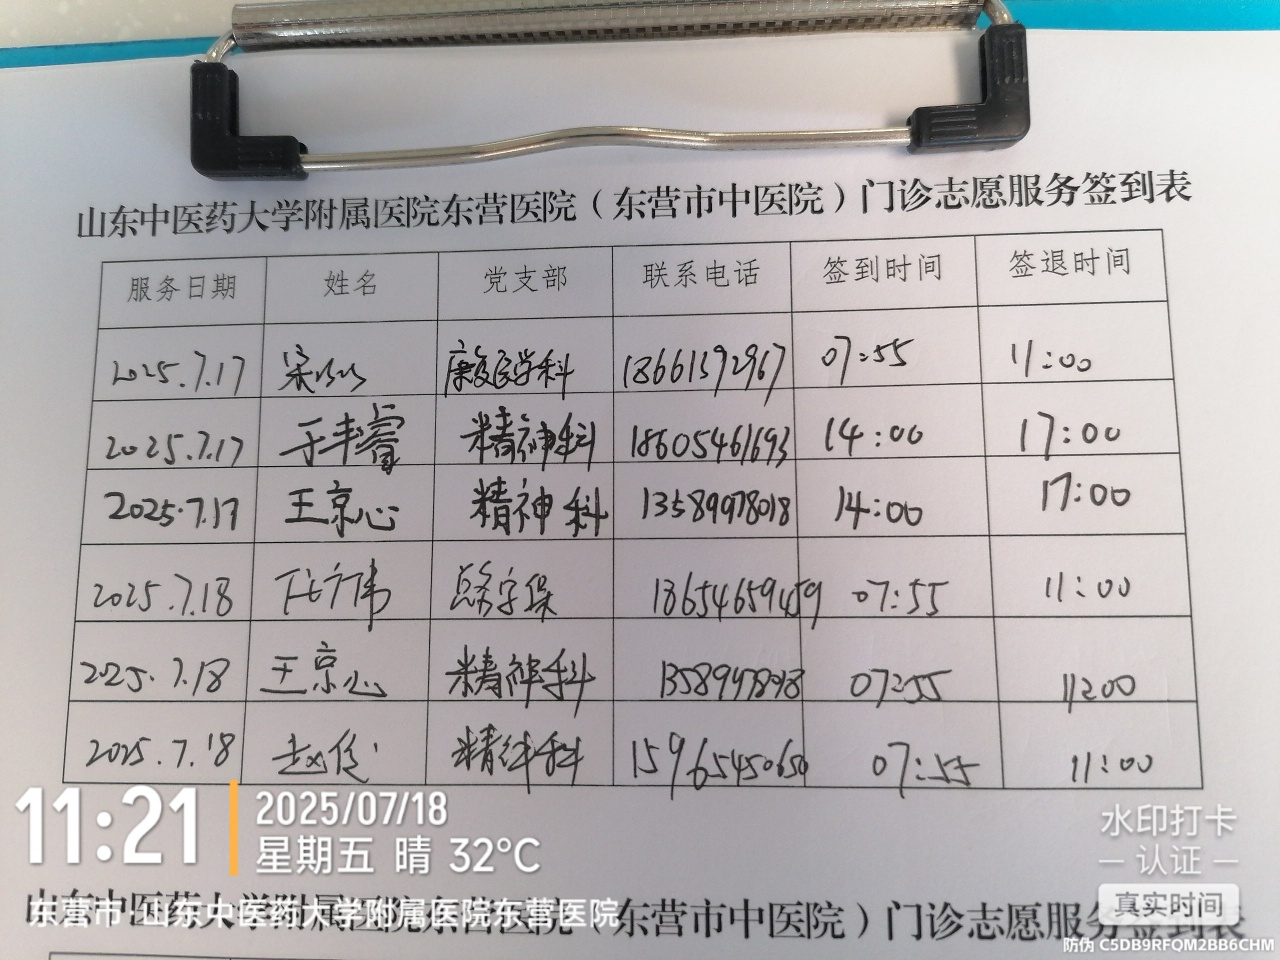 山东中医药大学附属医院东营医院（东营市中医院）门诊志愿服务签到表
服务日期 姓名 党支部 联系电话 签到时间 签退时间
2025.7.17 宋 康复医学科 18661592967 07:55 11:00
2025.7.17 于丰睿 精神科 18605461693 14:00 17:00
2025.7.17 王京心 精神科 13589978018 14:00 17:00
2025.7.18 伟 18654659459 07:55 11:00
2025.7.18 王京心 精神科 07:55 11:00
2025.7.18 赵 精神科 15965450650 07:55 11:00
11:21
2025/07/18
星期五 晴 32°C
水印打卡
认证
真实时间
山东中医药大学附属医院东营医院（东营市中医院）门诊志愿服务签到表
东营市·山东中医药大学附属医院东营医院
防伪 C5DB9RFQM2BB6CHM